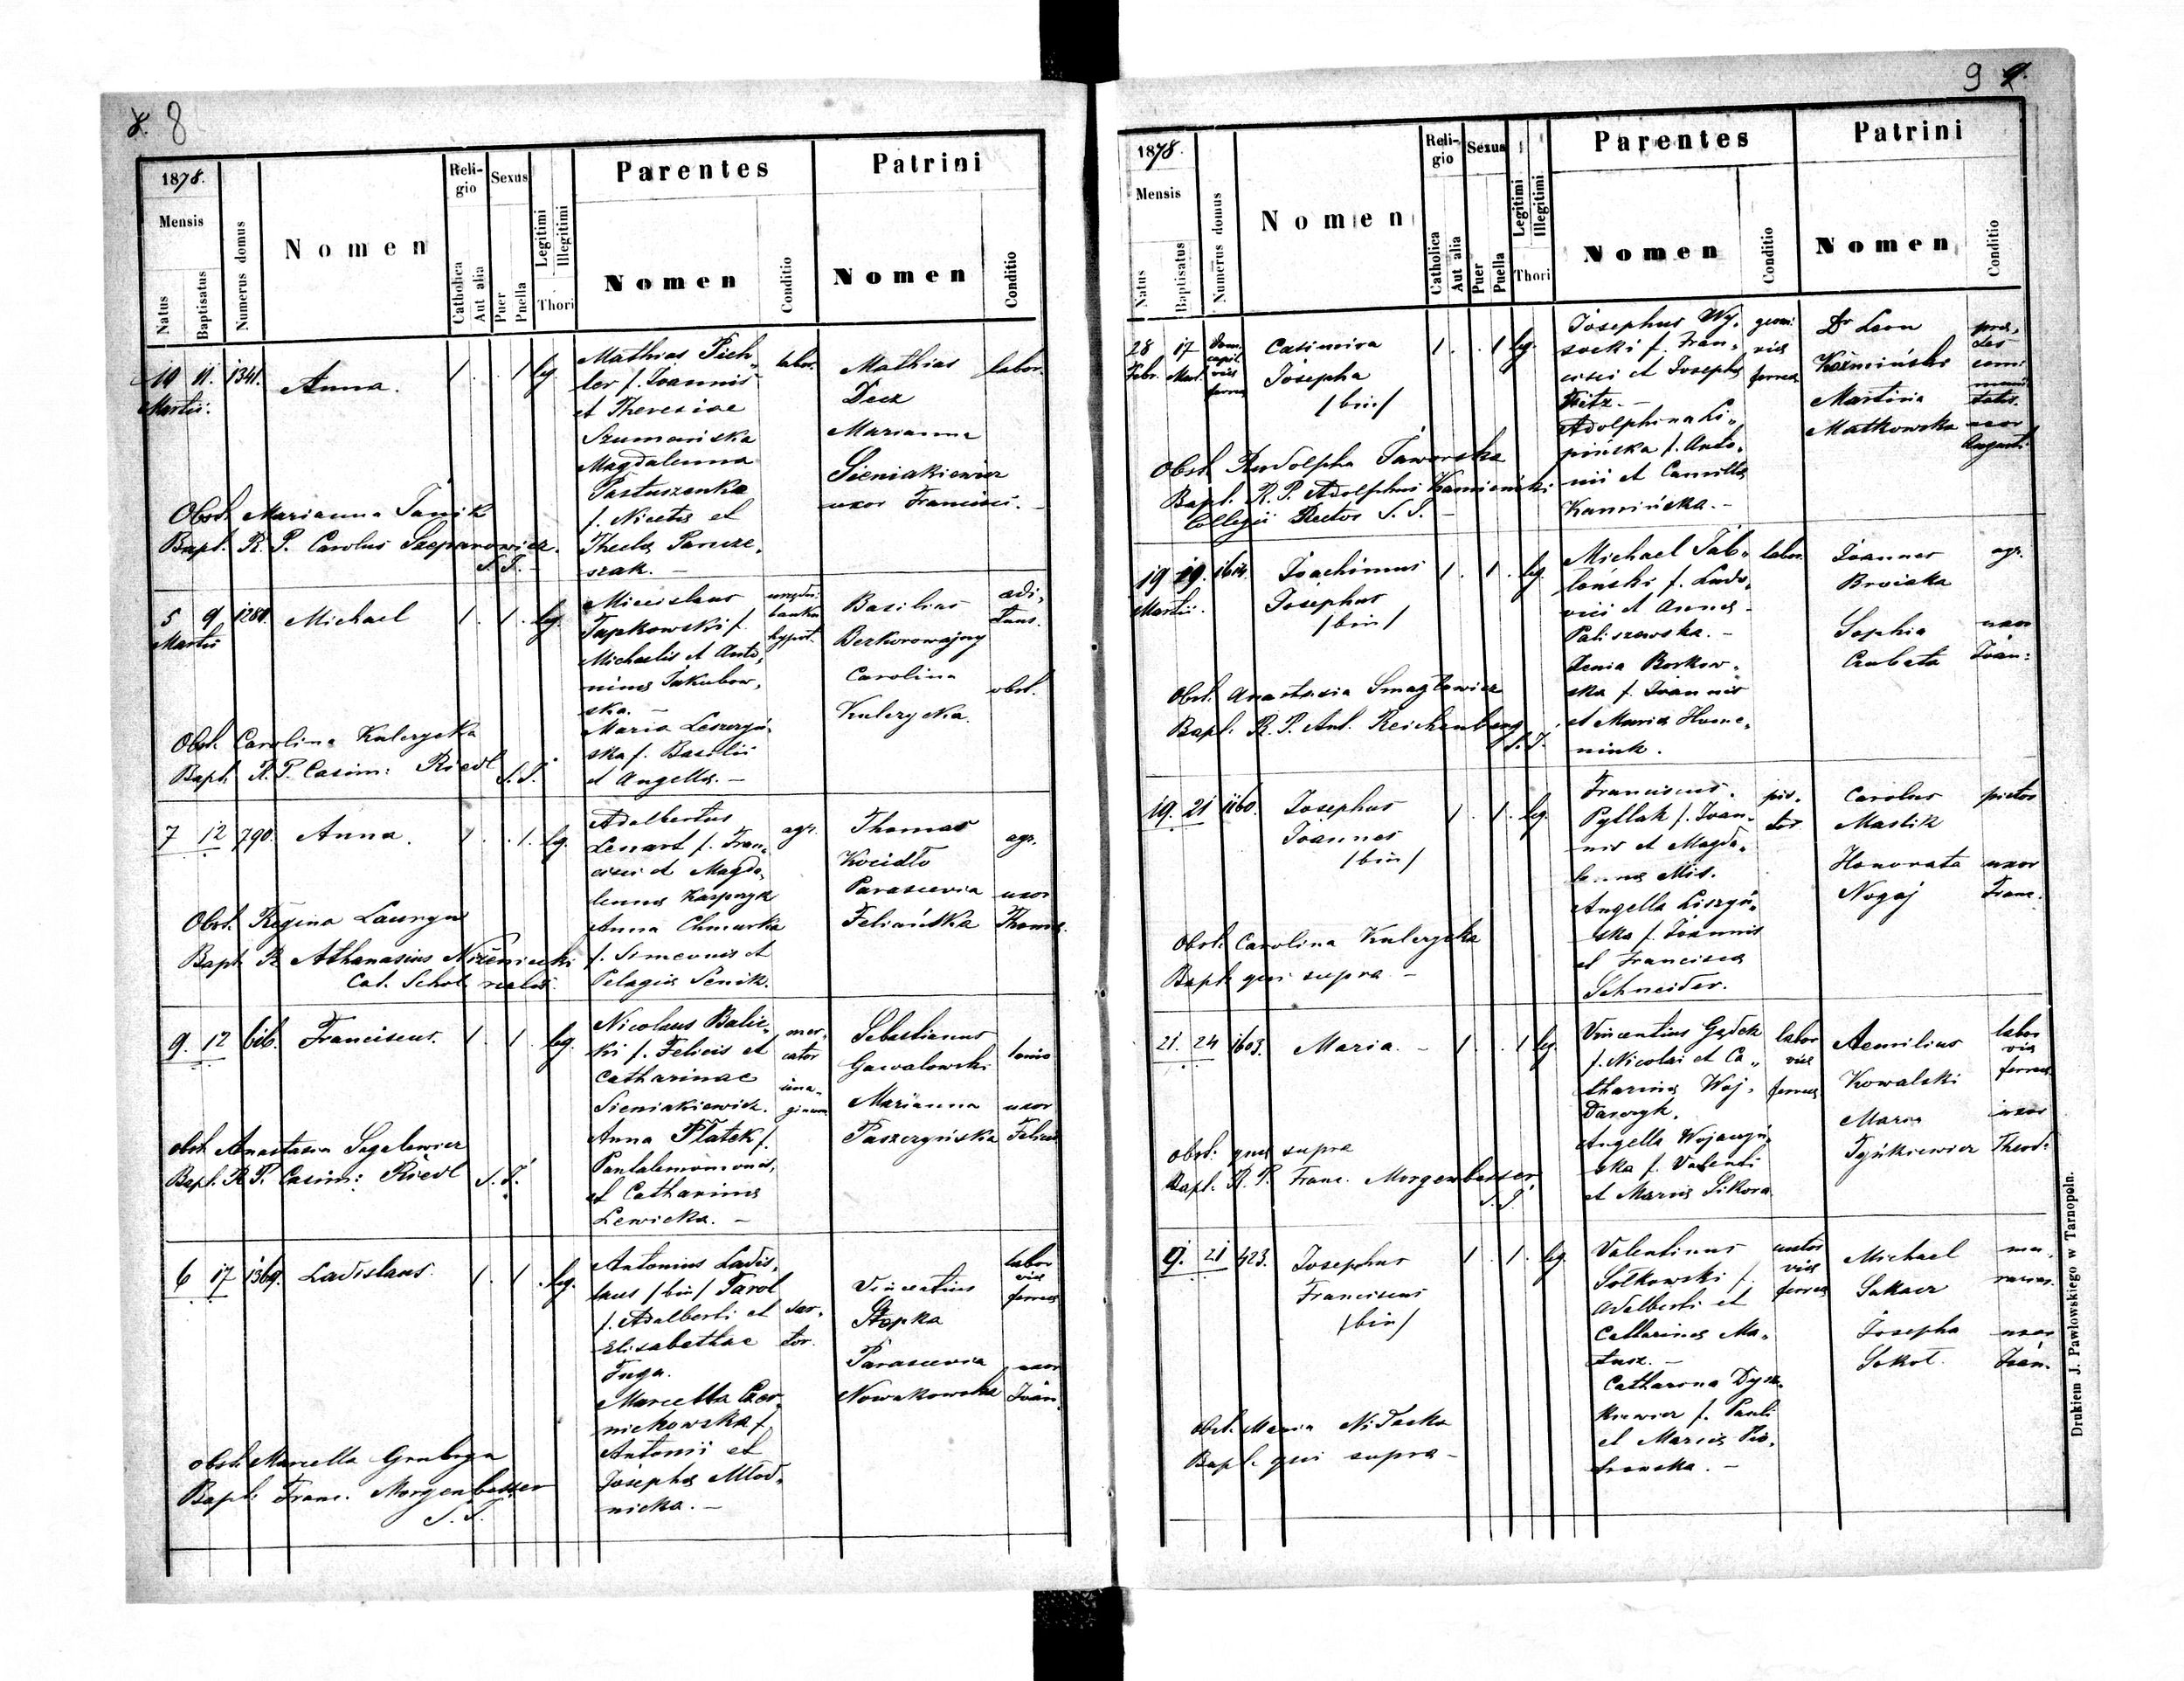 8
1878.
Mensis
Natus
Baptisatus
Numerus domus
Nomen
Religio
Catholica
Aut alia
Sexus
Puer
Puella
Legitimi
Illegitimi
Thori
Parentes
Nomen
Conditio
Patrini
Nomen
Conditio
10 11. 1341. Anna. 1. 1 leg.
Martii.
Mathias Pich„
ler f. Joannis
et Theresiae
Szumańska
Magdalenna
Pastuszenka
f. Nicetae et
Theclae Pancze„
szak. –
labor.
Mathias
Decz
Marianna
Sieniakiewicz
uxor Francisci. –
labor.
Obst. Marianna Janik
Bapt. R. P. Carolus Szepanowicz.
S. J. –
5 9 1280. Michael 1. 1. leg.
Martii
Miecislaus
Tapkowski f.
Michaelis et Anto„
ninae Jakubow„
ska. –
Maria Leszczyń„
ska f. Basilii
et Angellae. –
banku
hypot.
Basilius
Bezkorowajny
Carolina
Kulczycka.
obst.
Obst. Carolina Kulczycka
Bapt. R. P. Casim: Riedl S. J.
7 12 790. Anna. 1. 1. leg.
Adalbertus
Lenart f. Fran„
cisci et Magda„
lennae Kasprzyk
Anna Chmurka
f. Simeonis et
Pelagiae Senik.
agr.
Thomas
Kocidło
Parascevia
Feliańska
agr.
uxor
Thomae.
Obst. Regina Lauryn
Bapt. R. Athanasius Niżeniecki
Cat. Schol. realis.
9. 12 616. Franciscus. 1. 1 leg.
Nicolaus Balic„
ki f. Felicis et
Catharinae
Sieniakiewicz.
Anna Płatek f.
Pantalemomonis,
et Catharinae
Lewicka. –
mer„
cator
ima„
ginum
Sebastianus
Gawalowski
Marianna
Paszczyńska
lanio
uxor
Felicis
obst. Anastasia Segelewicz
Bapt. R. P. Casim: Riedl S. J.
6 17 1369. Ladislaus. 1. 1 leg.
Antonius Ladis„
laus /bin/ Tarol
f. Adalberti et
Elisabethae
Fuga.
Marcella Czer„
nichowska f.
Antonii et
Josephae Młod„
nicka. –
sar„
tor.
Vincentius
Stopka
Parascevia
Nowakowska
labor
viae
ferreae
uxor
Joan.
obst. Marcella Grubyn
Bapt: Franc. Morgenbesser
S. J.
9
1878.
Mensis
Natus
Baptisatus
Numerus domus
Nomen
Religio
Catholica
Aut alia
Sexus
Puer
Puella
Legitimi
Illegitimi
Thori
Parentes
Nomen
Conditio
Patrini
Nomen
Conditio
28 17
Febr. Mart.
viae
ferreae
Casimira
Josepha
/bin/
1. 1 leg.
Josephus Wy„
socki f. Fran„
cisci et Josephae
Fitz. –
Adolphina Li„
pińska f. Anto„
nii et Camillae
Kamińska. –
viae
ferreae
Dr Leon
Koźmiński
Martina
Matkowska
uxor
Augusti
Obst. Rudolpha Jaworska
Bapt. R. P. Adolphus Kamieński
Collegii Rector S. J. –
19 19. 1614. Joachimus
Martii.
Josephus
/bin/
1. 1. leg.
Michael Jab„
łoński f. Ludo„
vici et Annae
Paliszewska. –
Xenia Borkow„
ska f. Joannis
et Mariae Home„
niuk.
labor.
Joannes
Broiaka
Sophia
Czubata
agr.
uxor
Joan:
Obst. Anastasia Smaglowicz
Bapt. R. P. Ant. Reichenberg
S. J.
19. 21 1160. Josephus
Joannes
/bin/
1. 1. leg.
Franciscus
Pyllak f. Joan„
nis et Magda„
lennae Mis.
Angella Liszyń„
ska f. Joannis
et Francisca
Schneider.
pis„
tor
Carolus
Mastik
Honorata
Nogaj
pictor
uxor
Franc.
Obst. Carolina Kulczycka
Bapt. qui supra –
21. 24 1603. Maria. – 1. 1 leg.
Vincentius Gądek
f. Nicolai et Ca„
tharinae Woj„
darczyk.
Angella Wojanyń„
ska f. Valenti
et Mariae Sikora
labor
viae
ferreae
Aemilius
Kowalski
Maria
Tyńkiewicz
labor
viae
ferreae
uxor
Theod:
obst: quae supra
Bapt. R. P. Franc. Morgenbesser,
S. J.
9. 21 423. Josephus
Franciscus
/bin/
1. 1. leg.
Valentinus
Sołkowski f.
Adalberti et
Catharinae Ma„
tusz. –
Catharona Dysz„
kiewicz f. Pauli
et Mariae Pio„
trowska. –
custos
viae
ferreae
Michael
Sakacz
Josepha
Sokoł.
mu„
rarius.
uxor
Joan.
Obst. Maria Nidecka
Bapt. qui supra –
Drukiem J. Pawłowskiego w Tarnopolu.